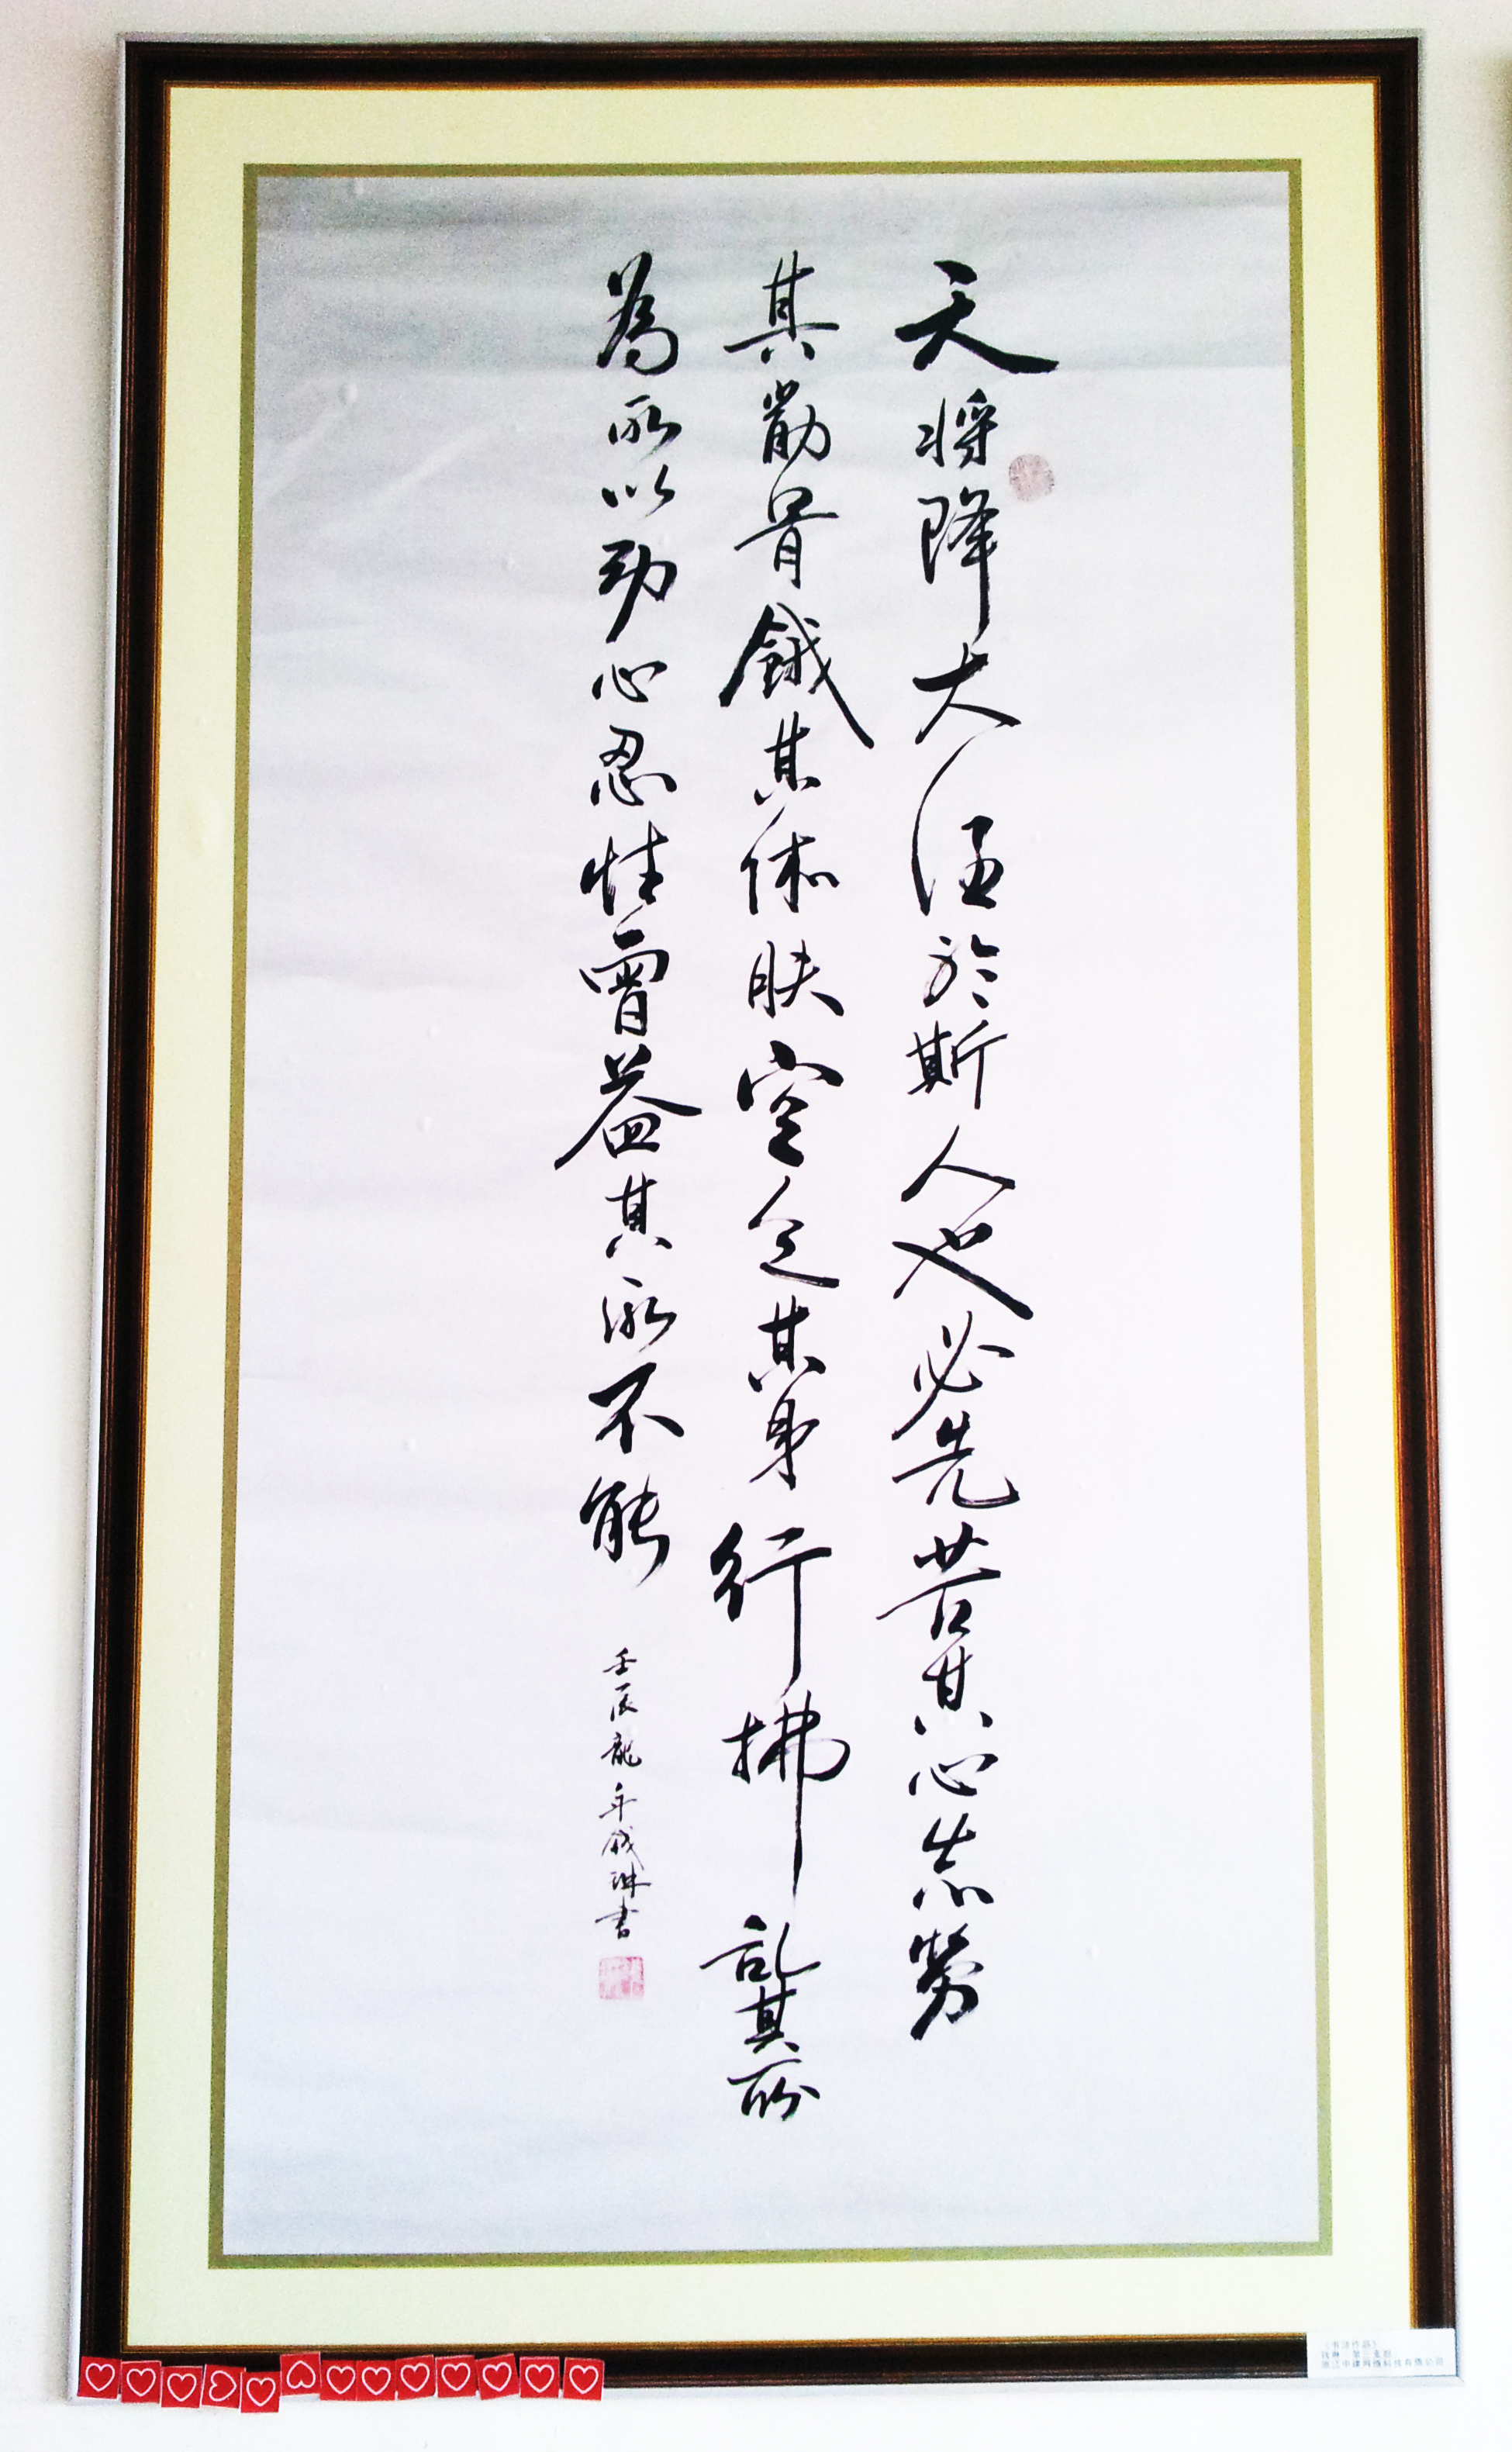 天将降大任於斯人也必先苦其心志勞
其筋骨餓其体肤空乏其身行拂乱其所
為所以动心忍性曾益其所不能
壬辰龍年钱琳書
《书法作品》